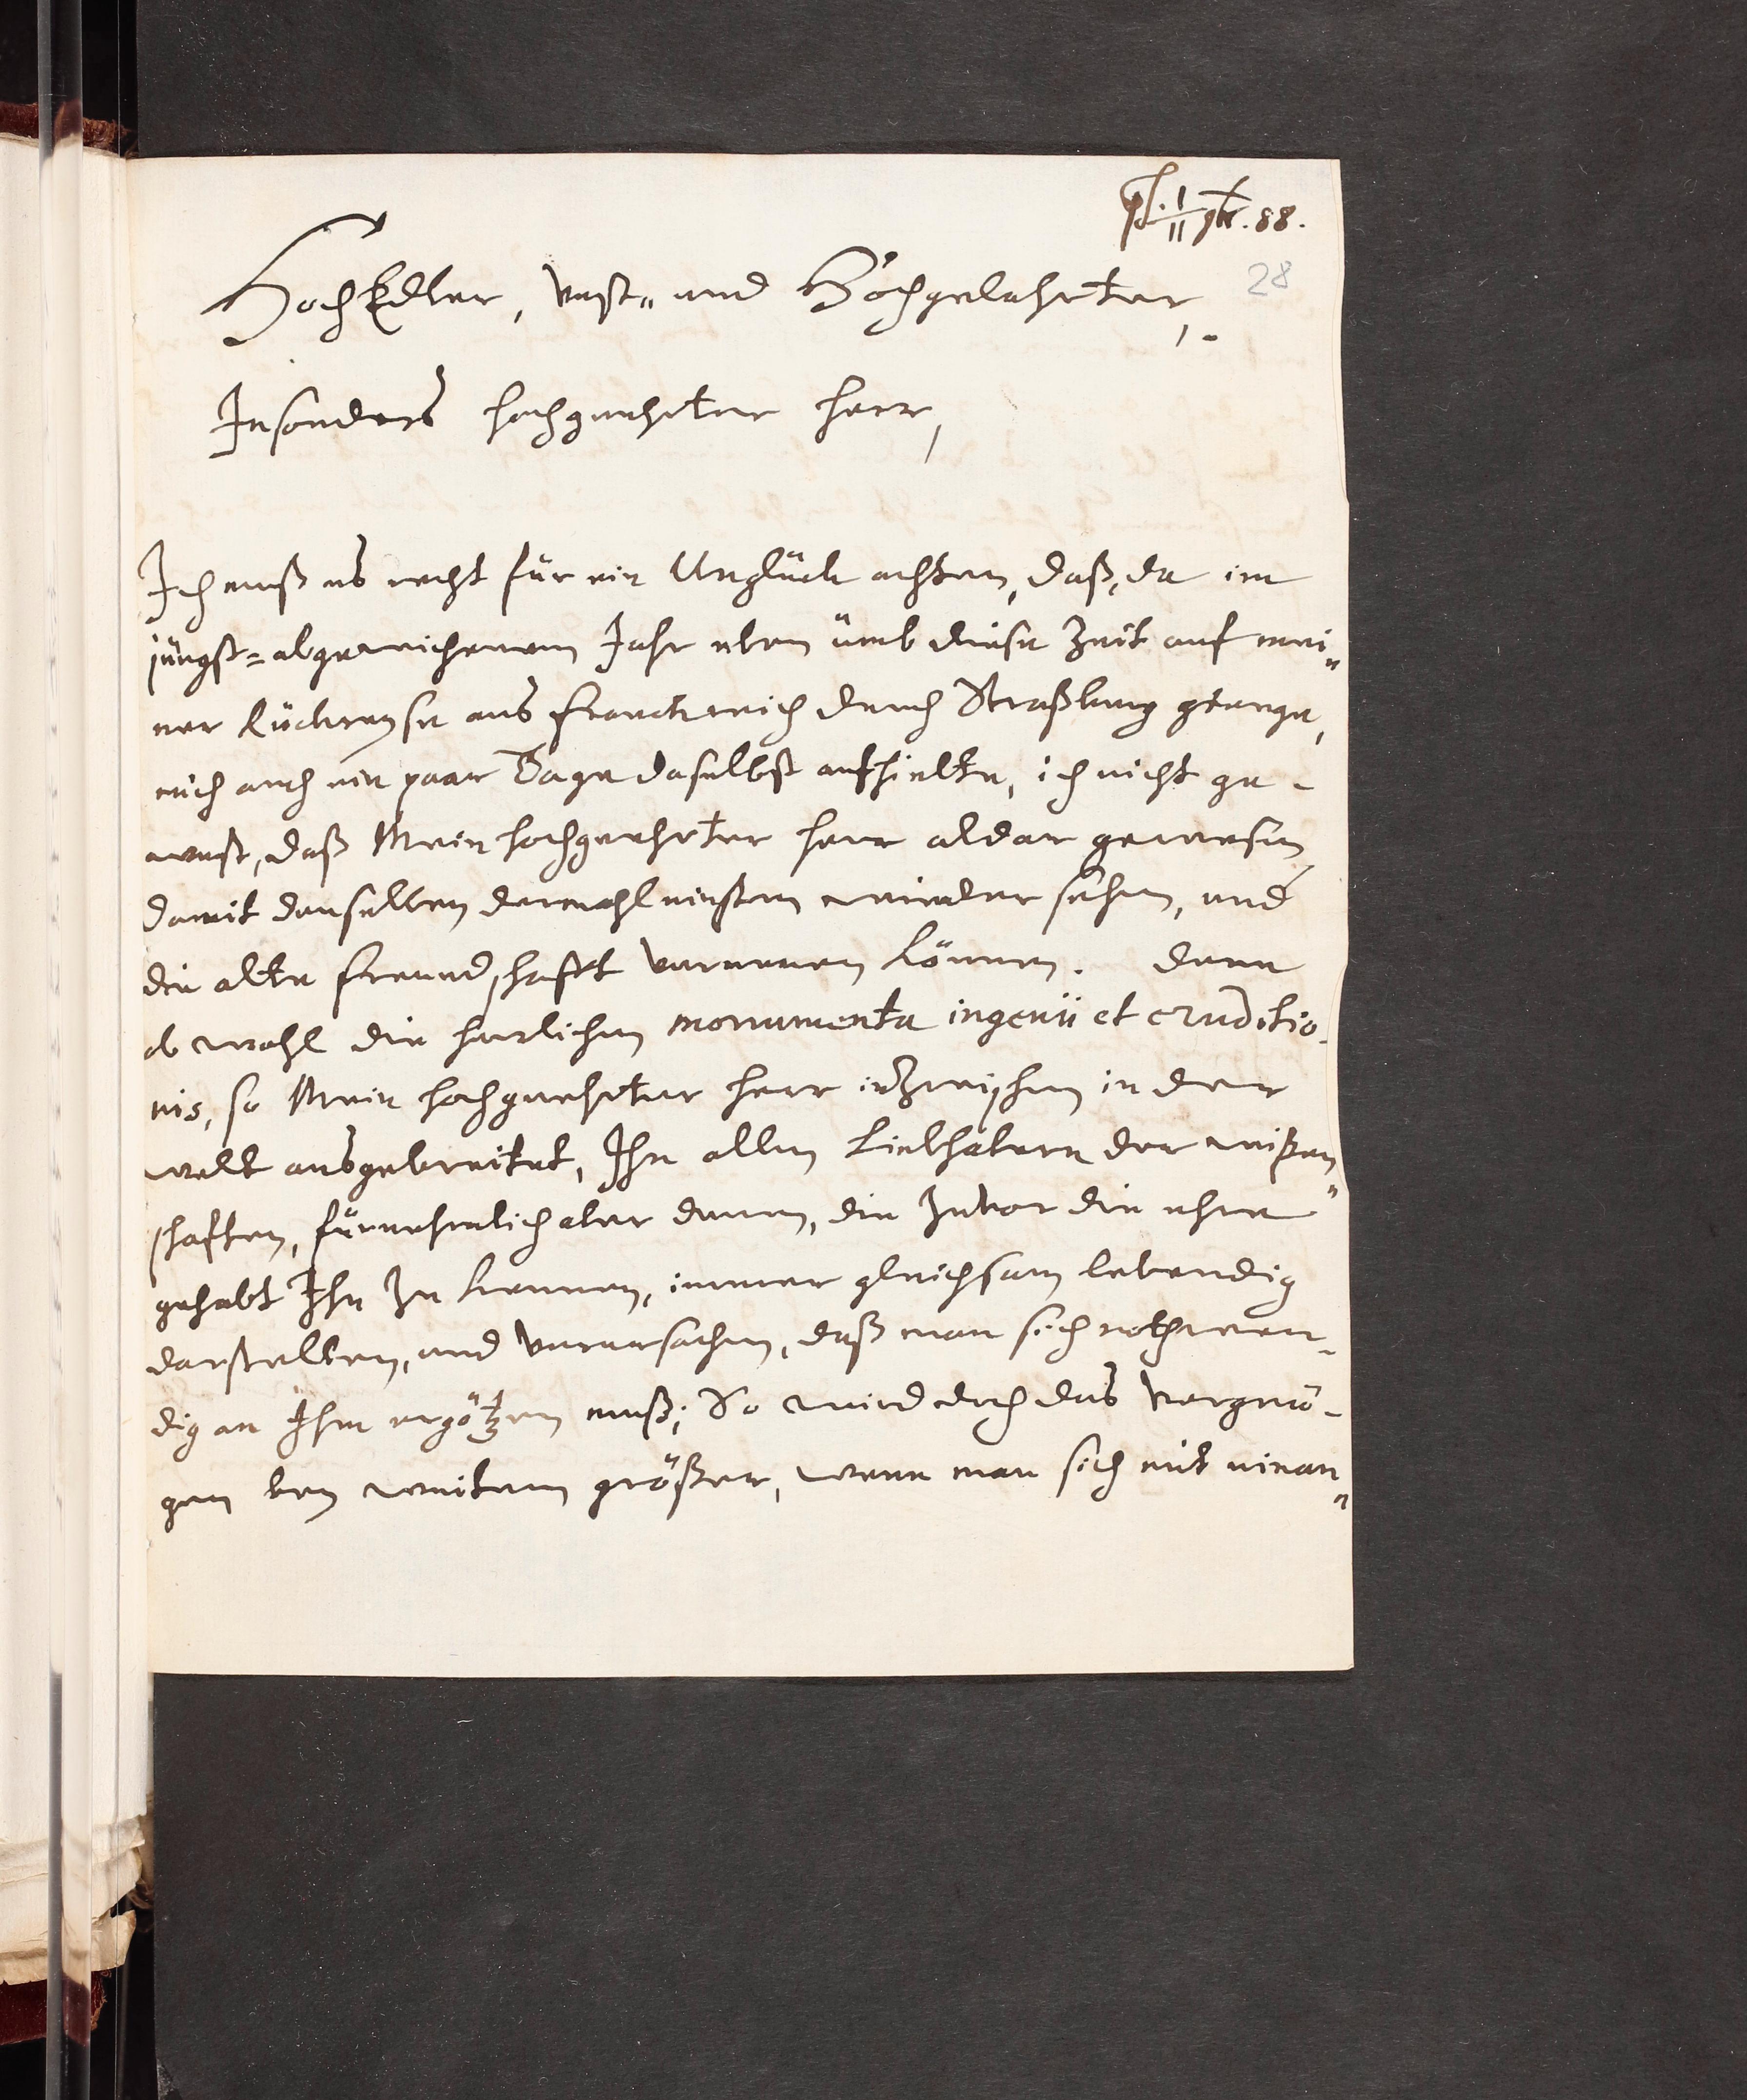 1/11 9br. 88.
28
HochEdler, Vest- und Hochgelahrter,
Insonders hochgeehrter Herr,
Ich muß es recht für ein Unglück achten, daß, da im
jüngst=abgewichenem Jahr eben ümb diese Zeit auf mei-
ner Rückreyse aus Franckreich durch Straßburg gienge,
mich auch ein paar Tage daselbst aufhielte, ich nicht ge-
wust, daß Mein hochgeehrter Herr aldar gewesen,
damit denselben dermahleinsten wieder sehen, und
die alte Freundschafft verneuen können. Denn
ob wohl die herlichen monumenta ingenii et eruditio-
nis, so Mein hochgeehrter Herr inzwischen in der
welt ausgebreitet, Ihn allen Liebhabern der wißen-
schaften, fürnehmlich aber denen, die zuvor die ehre
gehabt Ihn zu kennen, immer gleichsam lebendig
darstellen, und verursachen, daß man sich nothwen-
dig an Ihm ergötzen muß; So wird doch das Vergnü-
gen bey weitem größer, wenn man sich mit einan-